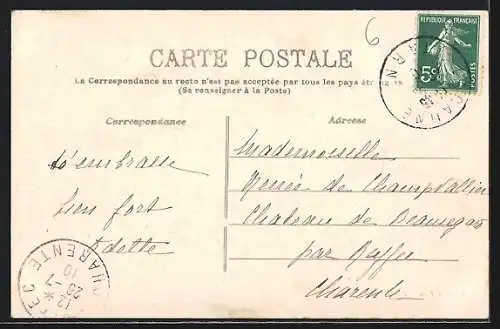 6
CARTE POSTALE
La Correspondance au recto n'est pas acceptée par tous les pays étrangers
(Se renseigner à la Poste)
REPUBLIQUE FRANÇAISE
5c
POSTES
Correspondance
Adresse
t'embrasse
bien fort
Odette
Mademoiselle
Renée de Champvallier
Chateau de Beauregard
par Ruffec
Charente
CHARENTE
12
26-7
10